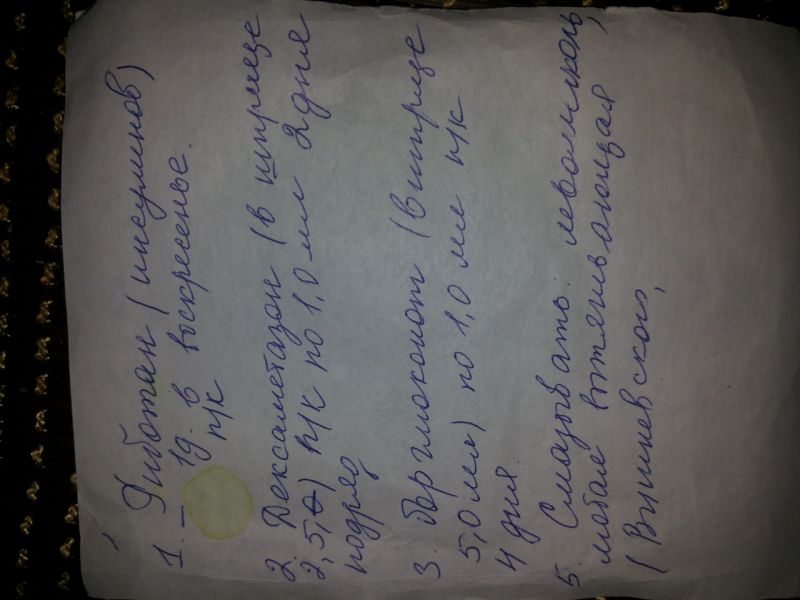 1. Риботан (инсулинов)
– 1д. в воскресенье.
п/к
2. Дексаметазон (в шприце
2,5,0) п/к по 1,0 мл 2 дня
подряд
3. (в шприце
5,0 мл) по 1,0 мл п/к
4 дня.
5. Смазывать левомиколь,
любая вытягивающая
(Вишневского,